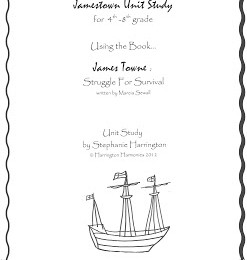 Jamestown Unit Study
for 4th -8th grade
Using the Book...
James Towne :
Struggle For Survival
written by Marcia Sewall
Unit Study
by Stephanie Harrington
© Harrington Harmonies 2012